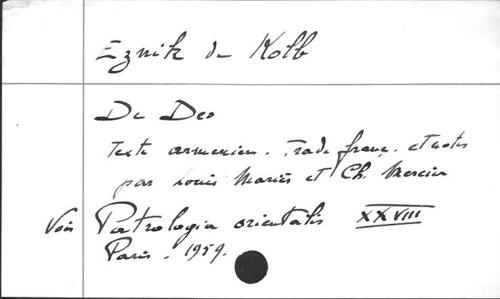 Eznik de Kolb
De Deo
Texte arménien. Trad. franç. et notes
par Louis Mariès et Ch. Mercier
Voir Patrologia orientalis XXVIII
Paris. 1959.